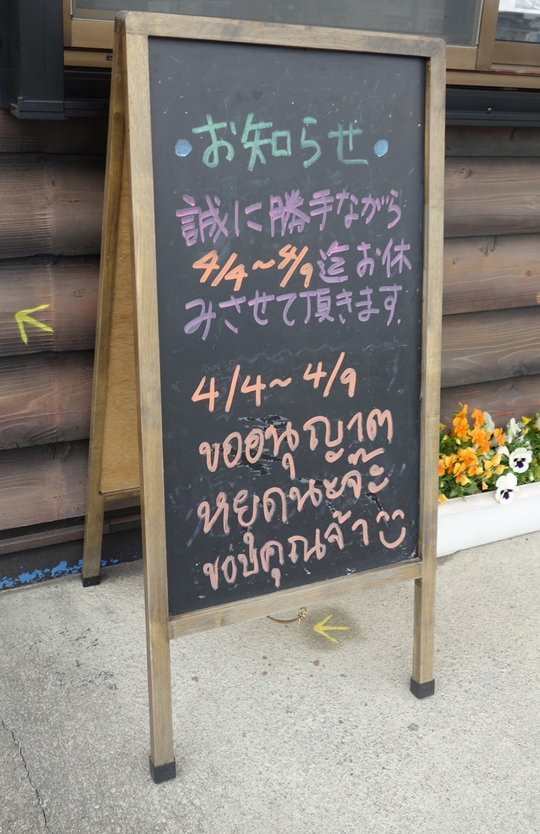 お知らせ
誠に勝手ながら
4/4~4/9迄お休
みさせて頂きます.
4/4~4/9
ขออนุญาต
หยุดนะจ๊ะ
ขอบคุณจ้า